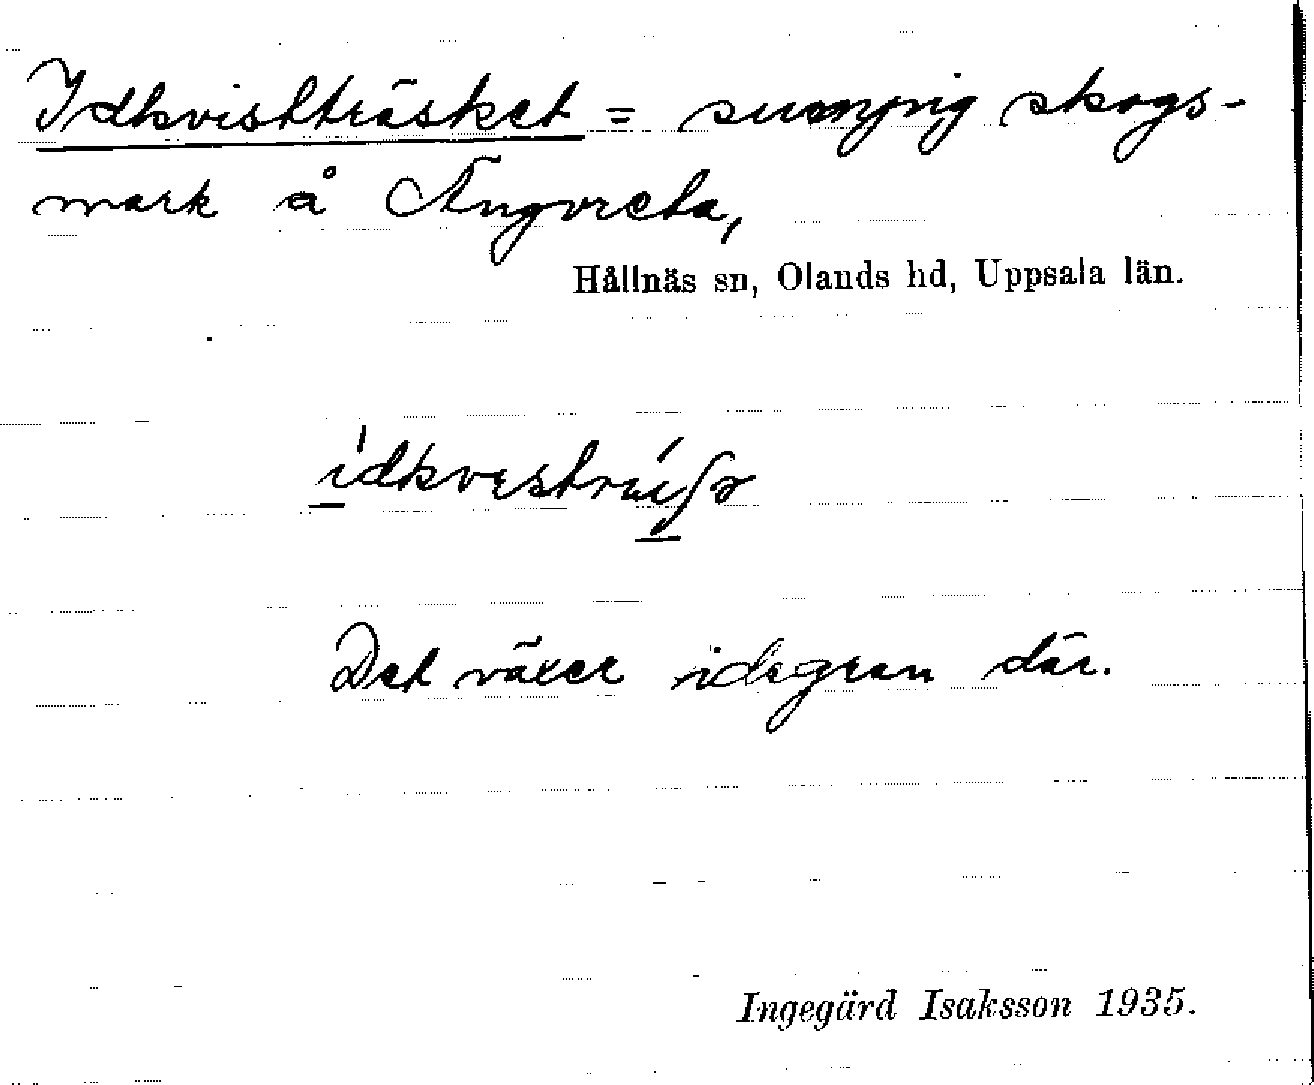 Idkvistträsket = sumpig skogs-
mark å Ängvreta,
Hållnäs sn, Olands hd, Uppsala län.
Det växer idegran där.
Ingegärd Isaksson 1935.